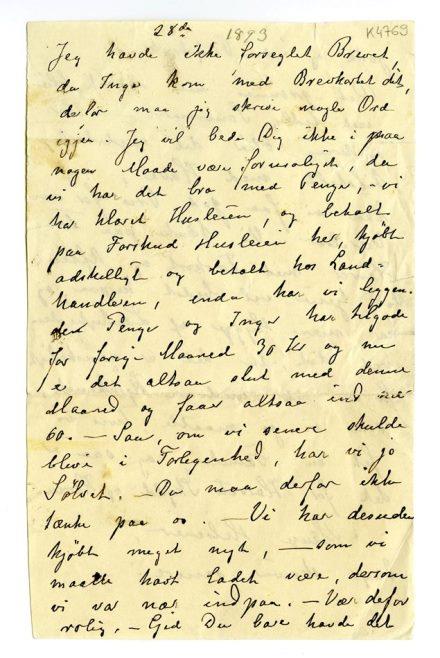 28de 1893 K4769
Jeg havde ikke forseglet Brevet,
da Inger kom med Brevkortet dit,
derfor maa jeg skrive nogle Ord
igjen. Jeg vil bede Dig ikke i paa
nogen Maade være foruroliget, da
vi har det bra med Penge, - vi
har klaret Husleien, og betalt
paa Forskud Husleien her, kjøbt
adskelligt og betalt hos Land=
handleren, endu har vi liggen-
de Penge og Inger har tilgode
for forrige Maaned 30 Kr og nu
e det altsaa slut med denne
Maaned og faar altsaa ind
60. — Saa, om vi senere skulde
blive i Forlegenhed, har vi jo
Sølvet. — Du maa derfor ikke
tænke paa os. — Vi har desuden
kjøbt meget nyt, — som vi
maatte havt ladet være, dersom
vi var nær indpaa. — Vær derfor
rolig. — Gid Du bare havde det